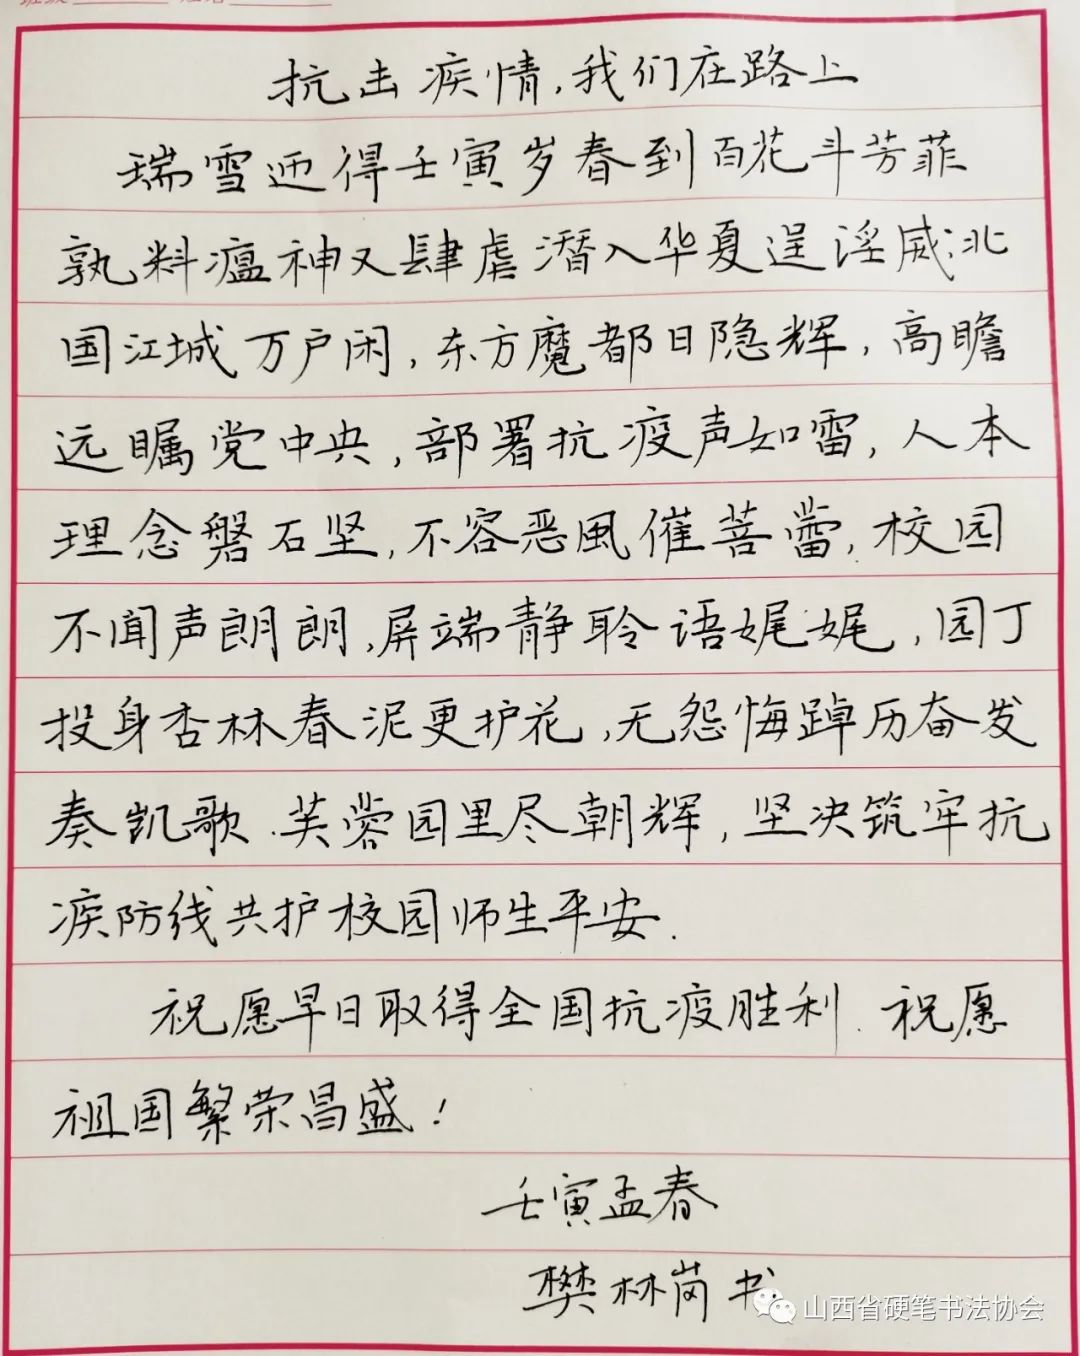 抗击疾情,我们在路上
瑞雪迎得壬寅岁春到百花斗芳菲
孰料瘟神又肆虐潜入华夏逞淫威,北
国江城万户闲,东方魔都日隐辉,高瞻
远瞩党中央,部署抗疫声如雷,人本
理念磐石坚,不容恶風催菩蕾,校园
不闻声朗朗,屏端静聆语娓娓,园丁
投身杏林春泥更护花,无怨悔踔历奋发
奏凯歌.芙蓉园里尽朝辉,坚决筑牢抗
疾防线共护校园师生平安.
祝愿早日取得全国抗疫胜利.祝愿
祖国繁荣昌盛!
壬寅孟春
樊林岗书
山西省硬笔书法协会